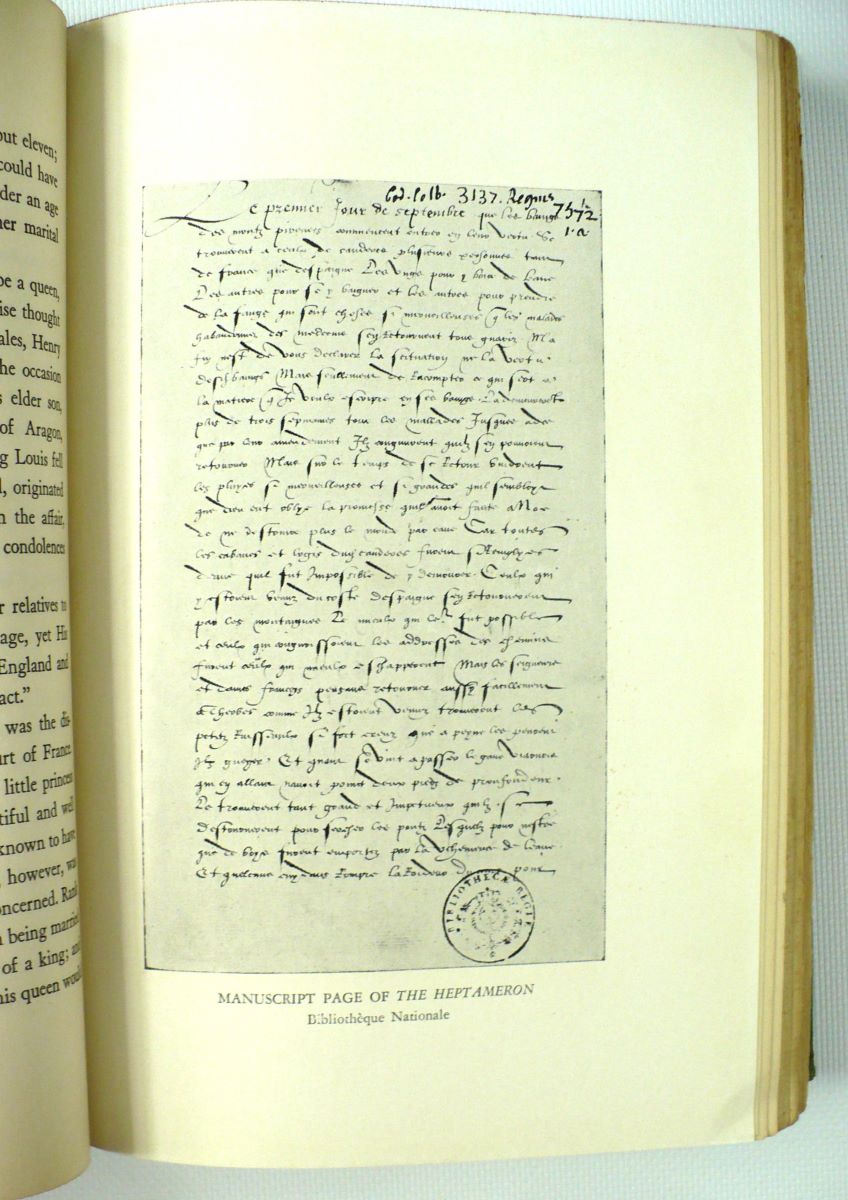 out eleven;
could have
der an age
her marital
be a queen,
ise thought
ales, Henry
he occasion
s elder son,
of Aragon,
g Louis fell
l, originated
n the affair,
condolences
r relatives to
age, yet His
England and
act."
was the dis
urt of France
little princess
tiful and well
known to have
, however, was
oncerned. Rand
n being married
of a king; and
his queen would
Cod. Colb. 3137. Regius
7572
1.a
Le premier Jour de septembre que les baings
des montz pirenees commencent entrer en leur vertu Se
trouverent a ceulx de caulderes plusieurs personnes tant
de france que despaigne Les ungs pour y boire de leaue
Les autres pour se y baigner et les autres pour prendre
de la fange qui sont choses si merveilleuses q les malades
habandonnez des medecins sen retournent tous guariz Ma
fin nest de vous declarer la scituation ne la vertu
desd baings Mais seullement de racompter ce qui sert a
la matiere q Je veulx escripre en ses baings
plus de trois sepmaines tous les mallades Jusques ad ce
que par leur amendement Ilz congnurent quilz sen pouvoient
retourner Mais sur le temps de ce retour vindrent
les pluyes si merveilleuses et si grandes quil sembloit
que dieu eut oblye la promesse quil avoit faicte a Noe
de ne destruire plus le monde par eaue Car toutes
les cabanes et logis dud caulderes furent si Remplyes
deaue quil fut Impossible de y demourer Ceulx qui
y estoient venuz du coste despaigne sen retournerent
par les montaignes Le mieulx qui leur fut possible
et ceulx qui congnoissoient les addresses des chemins
furent ceulx qui mieulx eschapperent Mais les seigneurs
et dames francois pensans retourner aussi facillement
a Therbes comme Ilz estoient venuz trouverent les
petitz Ruisseaulx si fort creuz que a peyne les peurent
Ilz gueyer Et quant se vint a passer le gave
qui en allant navoit point deux piedz de proufondeur
Le trouverent tant grand et Impetueux quilz se
destournerent pour sercher les pontz Lesquelz pour nestre
que de boys furent emportez par la vehemence de leaue
Et quelcuns
BIBLIOTHECÆ REGIÆ
MANUSCRIPT PAGE OF THE HEPTAMERON
Bibliothèque Nationale